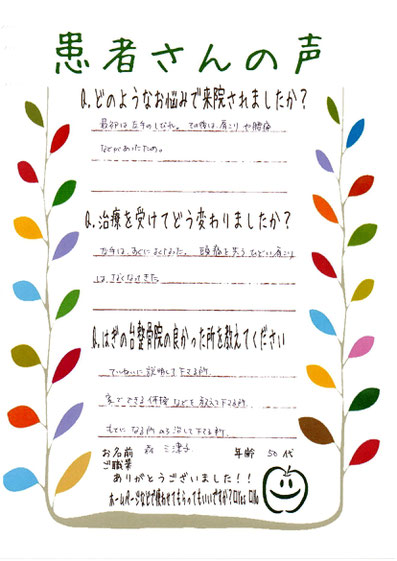 患者さんの声
Q.どのようなお悩みで来院されましたか?
最初は左手のしびれ。その後は肩こりや腰痛
などがあったため。
Q.治療を受けてどう変わりましたか?
左手は、すぐによくなった。頭痛を伴うなどの肩こり
は、なくなってきた
Q.はぎの台整骨院の良かった所を教えてください
ていねいに説明して下さる所。
家でできる体操などを教えて下さる所。
気になる所のみ治して下さる所。
お名前 森 三津子 年齢 50代
ご職業
ありがとうございました!!
ホームページなどで使わせてもらってもいいですか?□Yes □No